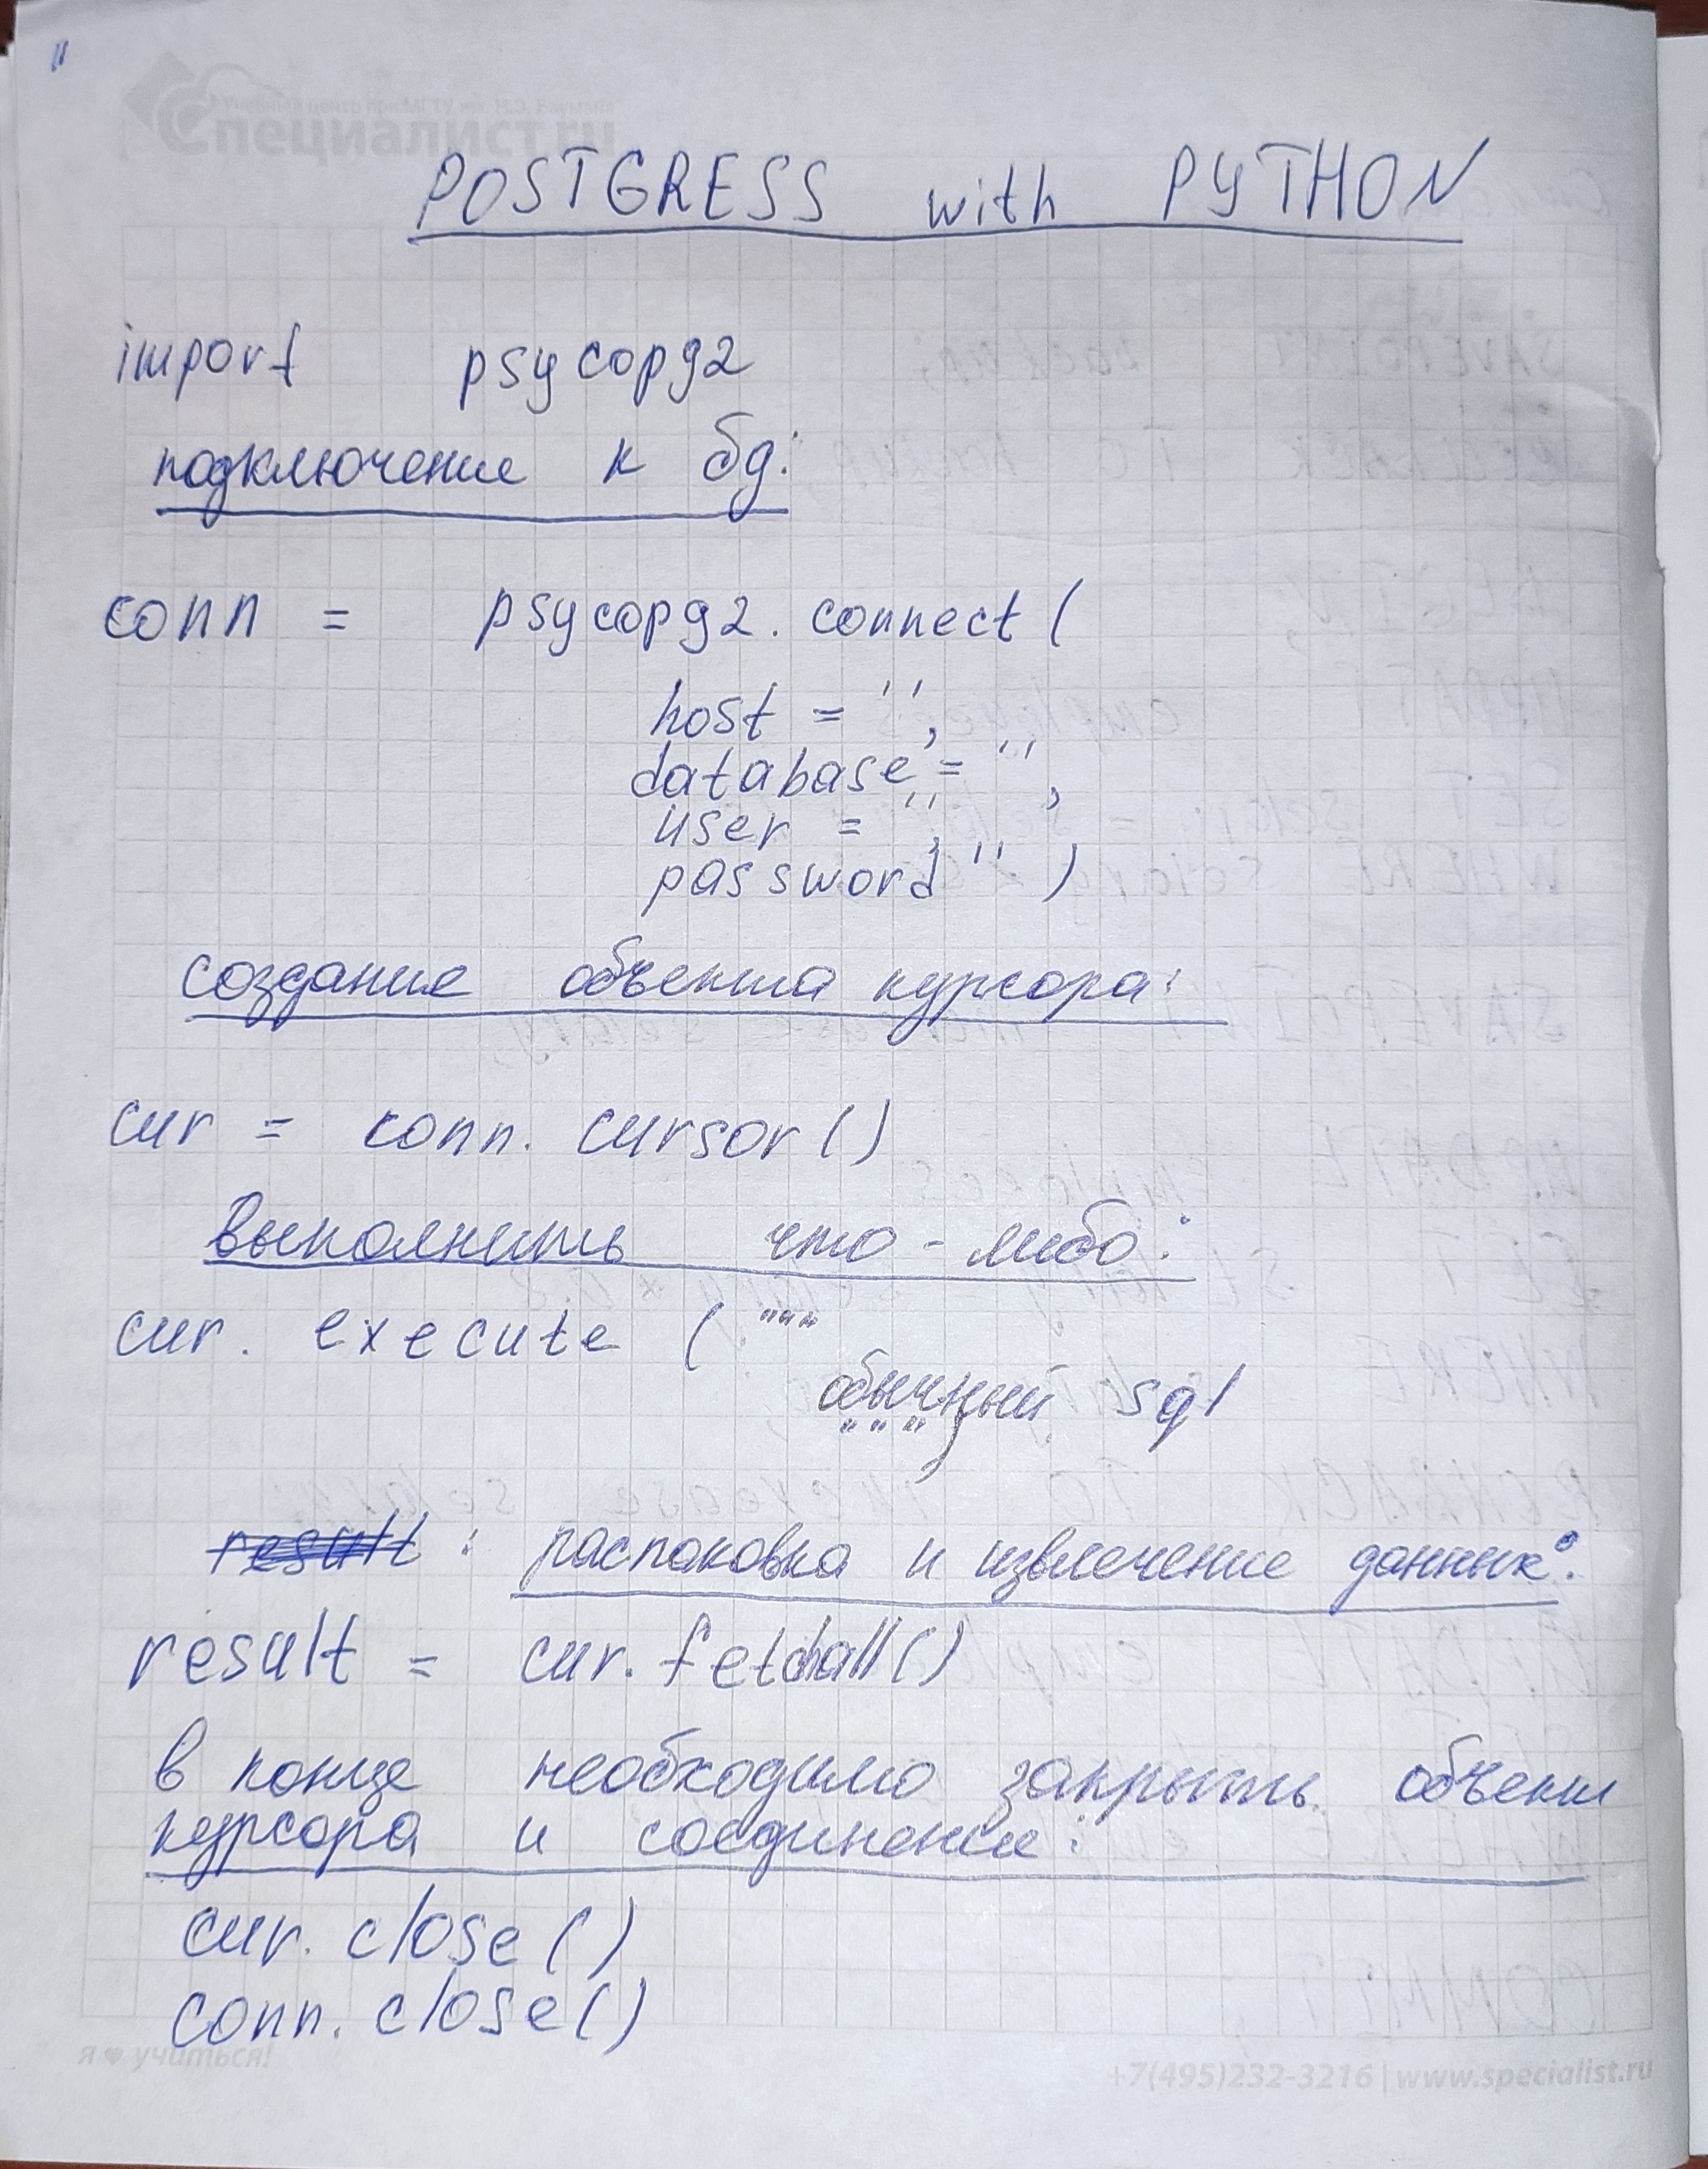 Учебный центр при МГТУ им. Н.Э. Баумана
Специалист.ru
POSTGRESS with PYTHON
import psycopg2
подключение к бд:
conn = psycopg2.connect(
host = '',
database = '',
user = '',
password '' )
создание объекта курсора:
cur = conn.cursor()
выполнить что-либо:
cur.execute ( """
обычный sql
""" )
result : распаковка и извлечение данных:
result = cur.fetchall()
в конце необходимо закрыть объект
курсора и соединение:
cur.close()
conn.close()
я ❤ учиться!
+7(495)232-3216 | www.specialist.ru